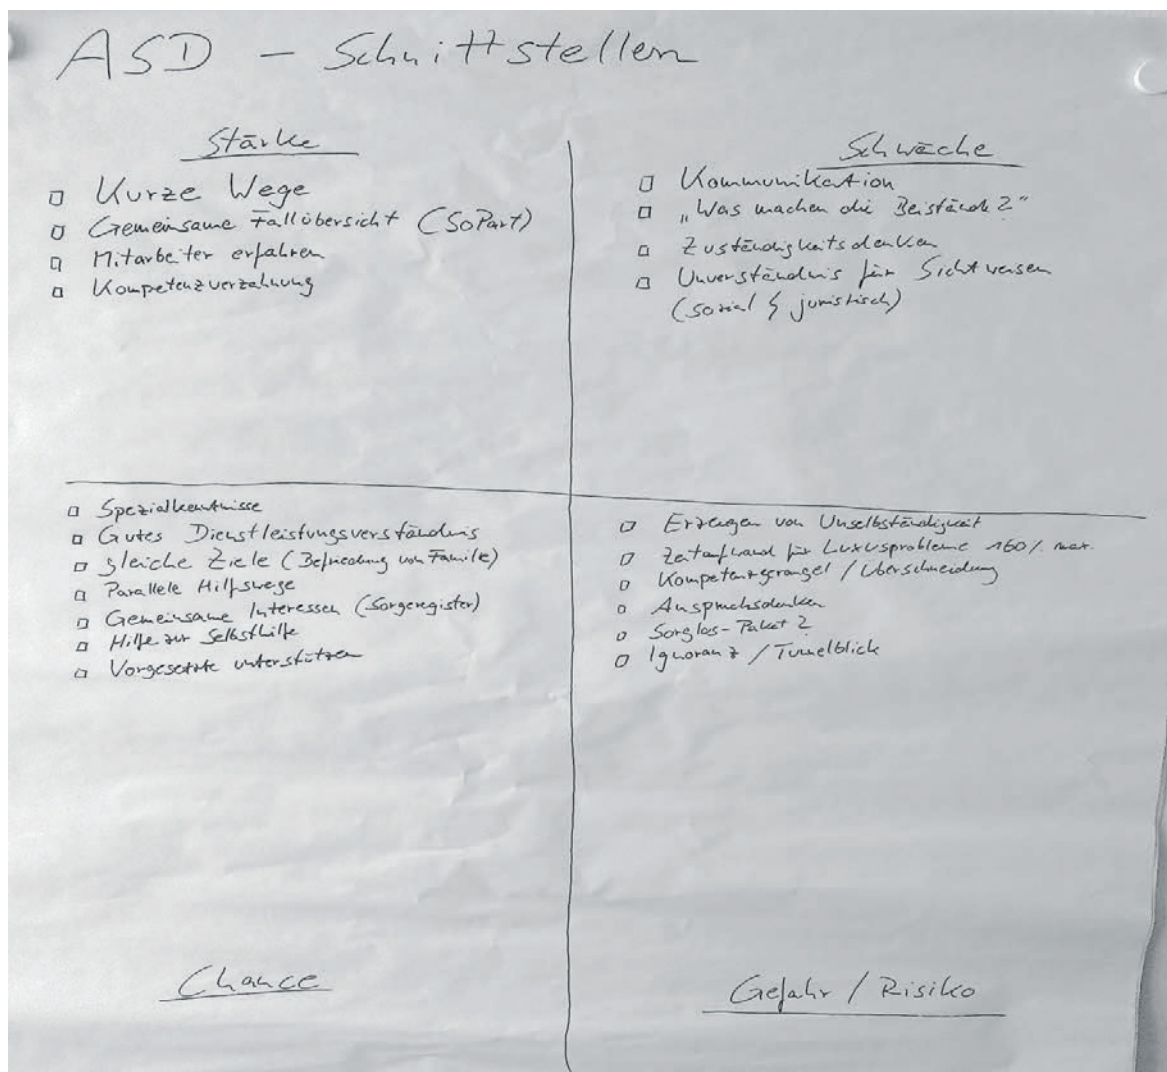 ASD – Schnittstellen
Stärke
□ Kurze Wege
□ Gemeinsame Fallübersicht (SoPart)
□ Mitarbeiter erfahren
□ Kompetenzverzahnung
Schwäche
□ Kommunikation
□ „Was machen die Beistände?"
□ Zuständigkeitsdenken
□ Unverständnis für Sichtweisen
(sozial & juristisch)
□ Spezialkenntnisse
□ Gutes Dienstleistungsverständnis
□ gleiche Ziele (Befriedung von Familie)
□ Parallele Hilfswege
□ Gemeinsame Interessen (Sorgeregister)
□ Hilfe zur Selbsthilfe
□ Vorgesetzte unterstützen
Chance
□ Erzeugen von Unselbständigkeit
□ Zeitaufwand für Luxusprobleme 160% max.
□ Kompetenzgerangel / Überschneidung
□ Anspruchsdenken
□ Sorglos-Paket?
□ Ignoranz / Tunnelblick
Gefahr / Risiko